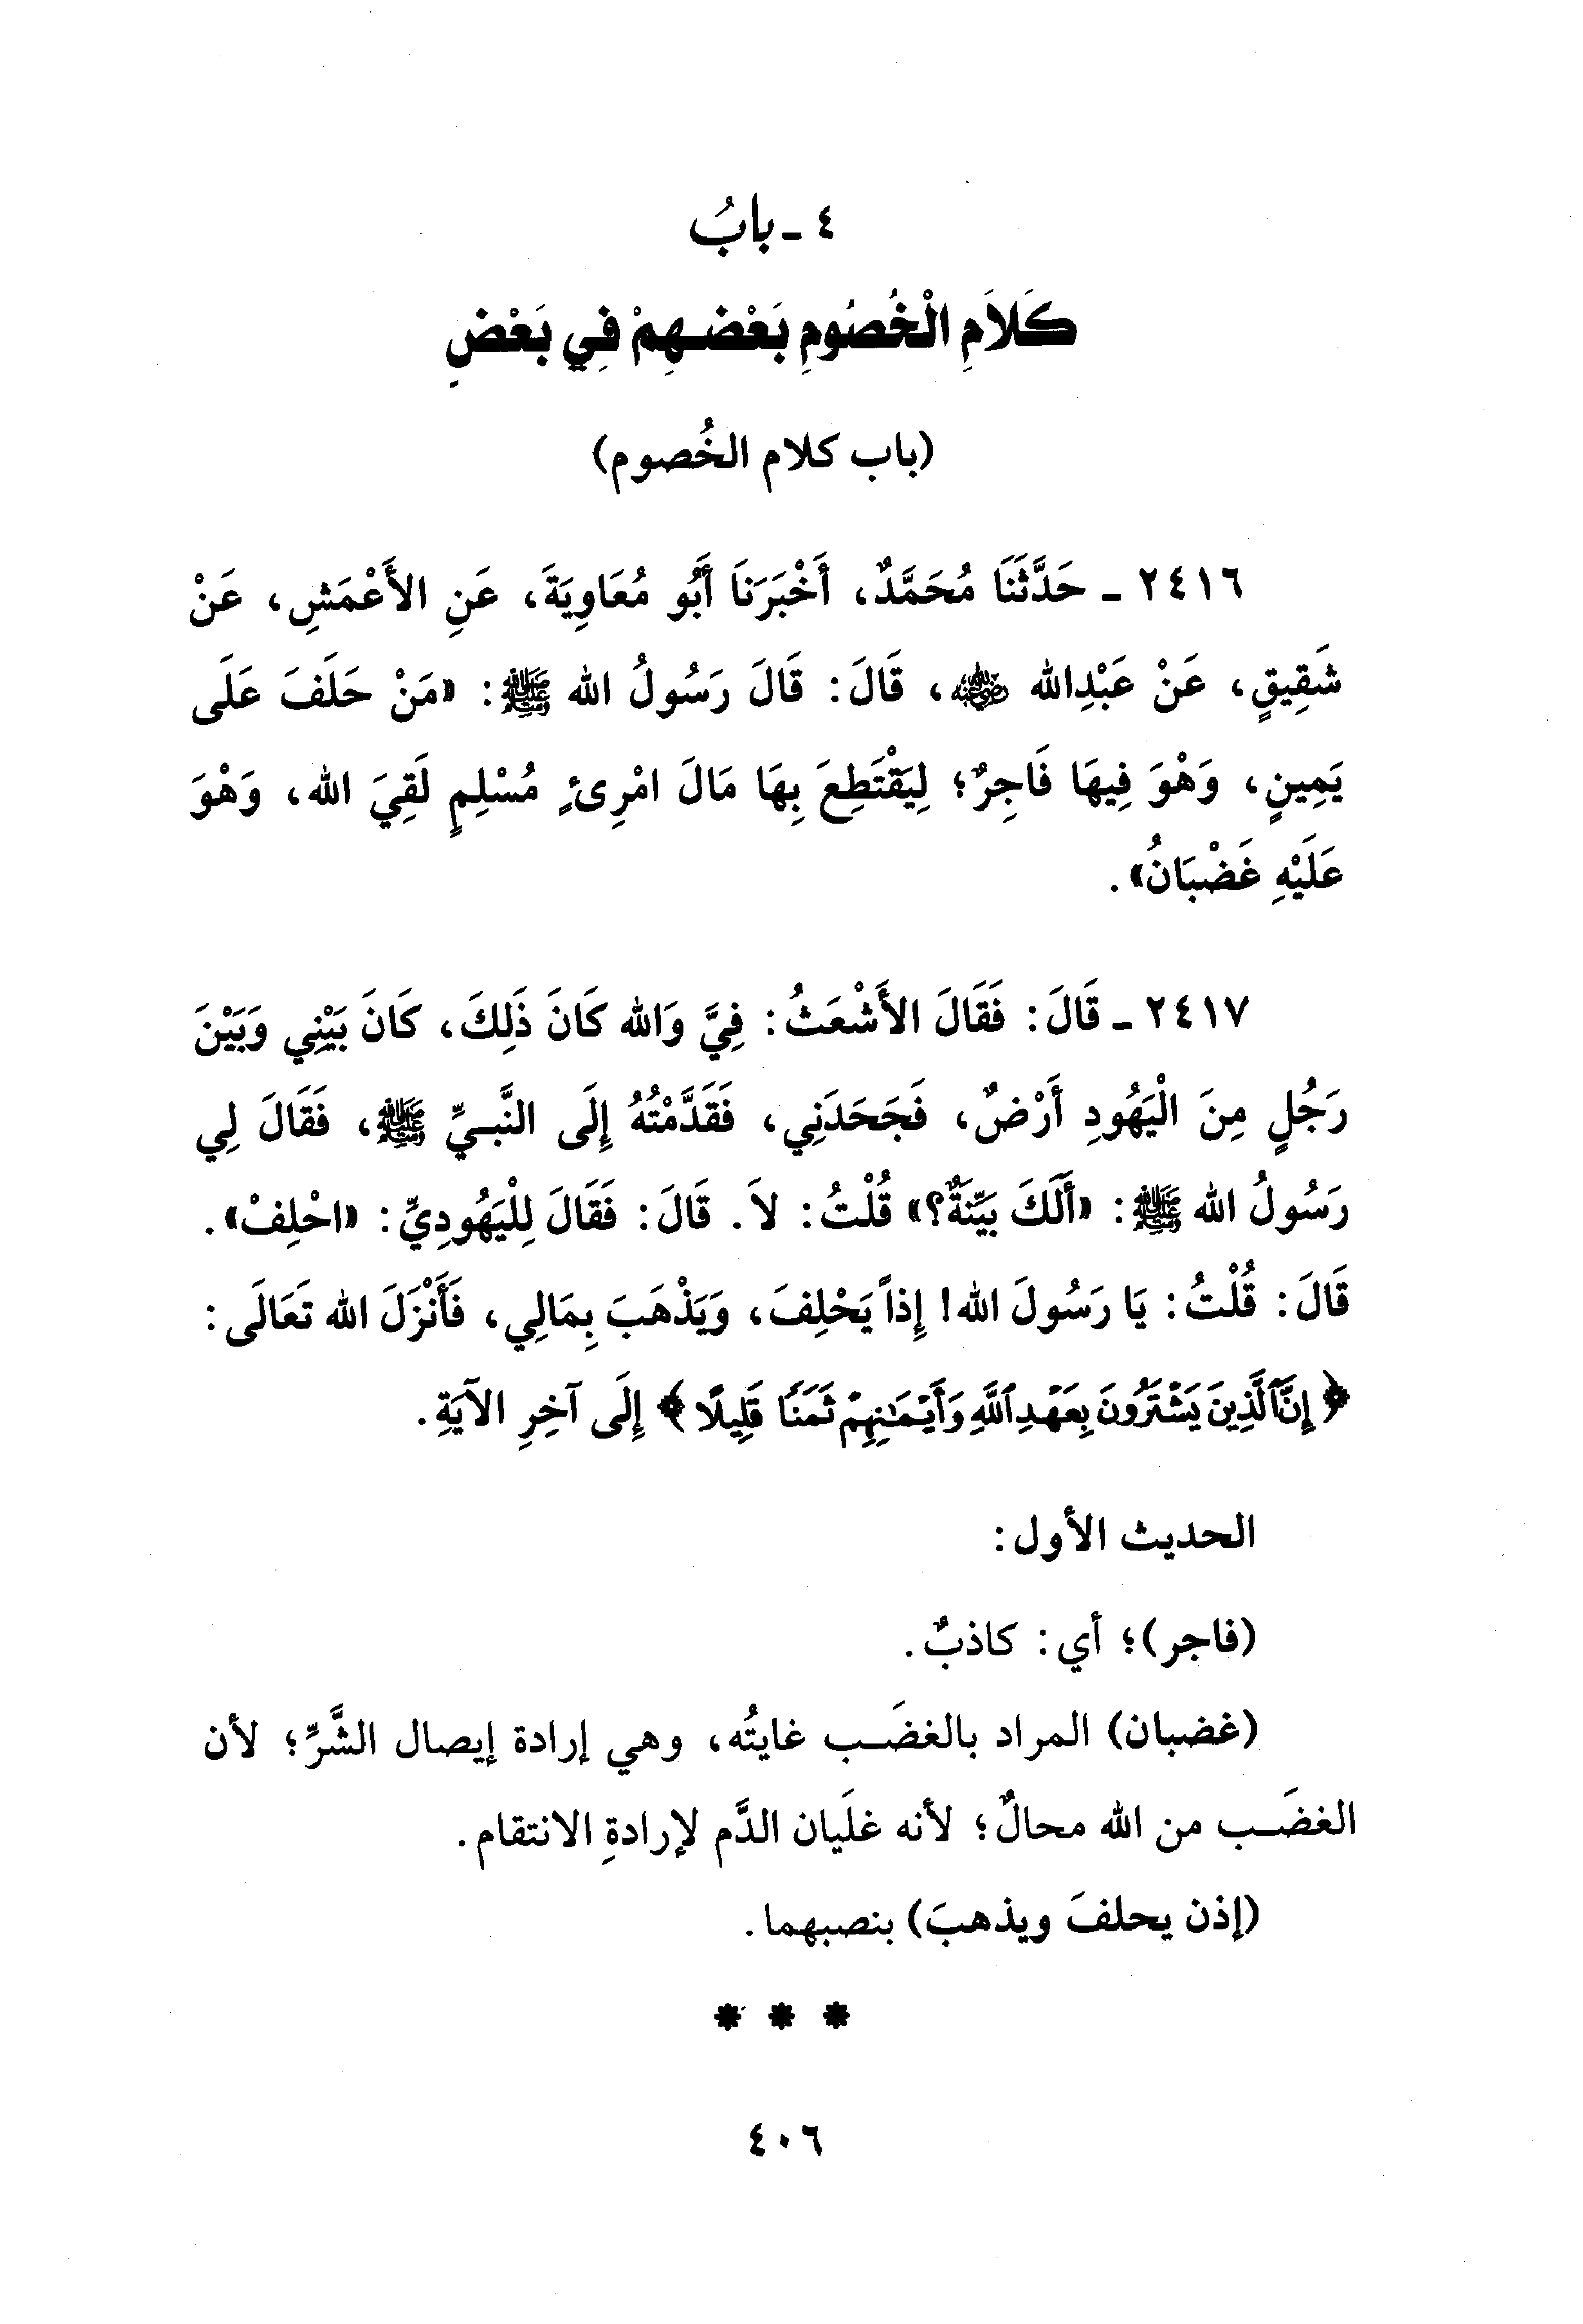 ٤ ـ بابُ
كَلاَمِ الْخُصُومِ بَعْضِهِمْ فِي بَعْضٍ
(باب كلام الخُصوم)
٢٤١٦ ـ حَدَّثَنَا مُحَمَّدٌ، أَخْبَرَنَا أَبُو مُعَاوِيَةَ، عَنِ الأَعْمَشِ، عَنْ
شَقِيقٍ، عَنْ عَبْدِالله رضي الله عنه، قَالَ: قَالَ رَسُولُ الله ﷺ: «مَنْ حَلَفَ عَلَى
يَمِينٍ، وَهْوَ فِيهَا فَاجِرٌ؛ لِيَقْتَطِعَ بِهَا مَالَ امْرِئٍ مُسْلِمٍ لَقِيَ الله، وَهْوَ
عَلَيْهِ غَضْبَانُ».
٢٤١٧ ـ قَالَ: فَقَالَ الأَشْعَثُ: فِيَّ وَالله كَانَ ذَلِكَ، كَانَ بَيْنِي وَبَيْنَ
رَجُلٍ مِنَ الْيَهُودِ أَرْضٌ، فَجَحَدَنِي، فَقَدَّمْتُهُ إِلَى النَّبيِّ ﷺ، فَقَالَ لِي
رَسُولُ الله ﷺ: «أَلَكَ بَيِّنَةٌ؟» قُلْتُ: لاَ. قَالَ: فَقَالَ لِلْيَهُودِيِّ: «احْلِفْ».
قَالَ: قُلْتُ: يَا رَسُولَ الله! إِذاً يَحْلِفَ، وَيَذْهَبَ بِمَالِي، فَأَنْزَلَ الله تَعَالَى:
﴿إِنَّ ٱلَّذِينَ يَشْتَرُونَ بِعَهْدِ ٱللَّهِ وَأَيْمَٰنِهِمْ ثَمَنًا قَلِيلًا﴾ إِلَى آخِرِ الآيَةِ.
الحديث الأول:
(فاجر)؛ أي: كاذبٌ.
(غضبان) المراد بالغضَب غايتُه، وهي إرادة إيصال الشَّرِّ؛ لأن
الغضَب من الله محالٌ؛ لأنه غلَيان الدَّم لإرادةِ الانتقام.
(إذن يحلفَ ويذهبَ) بنصبهما.
* * *
٤٠٦